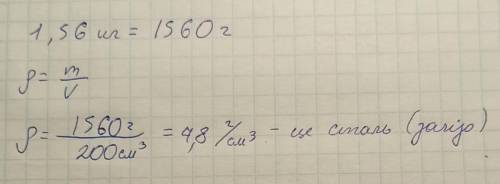 1,56 кг = 1560 г
ρ = m/V
ρ = 1560г/200см³ = 7,8 г/см³ - це сталь (залізо)